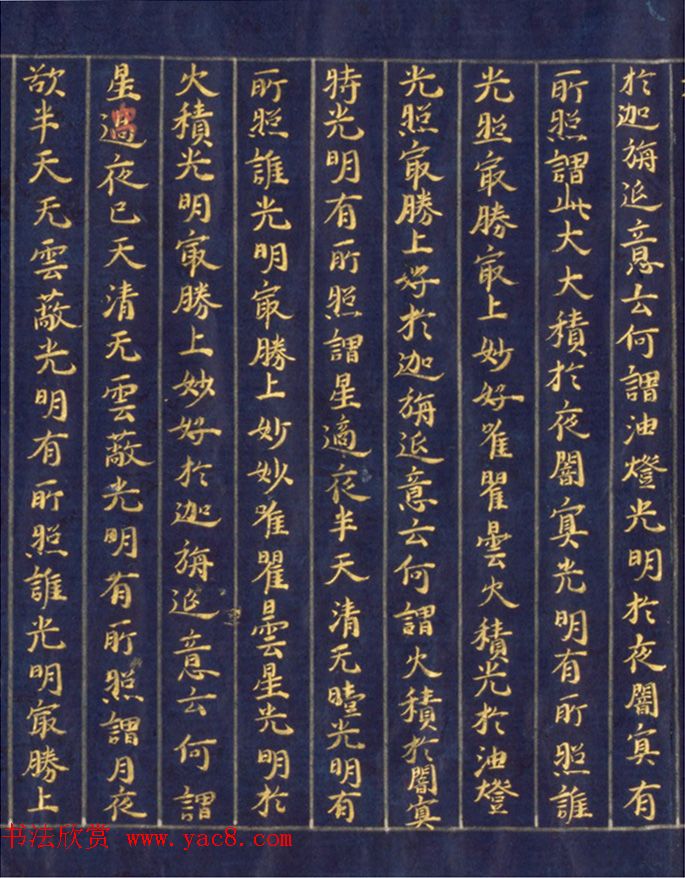 於迦旃延意云何謂油燈光明於夜闇冥有
所照謂此大大積於夜闇冥光明有所照誰
光照冣勝冣上妙好唯瞿曇火積光於油燈
光照冣勝上好於迦旃延意云何謂火積於闇冥
時光明有所照謂星適夜半天清无曀光明有
所照誰光明冣勝上妙妙唯瞿曇星光明於
火積光明冣勝上妙好於迦旃延意云何謂
星過夜已天清无雲蔽光明有所照謂月夜
欲半天无雲蔽光明有所照誰光明冣勝上
书法欣赏 www.yac8.com